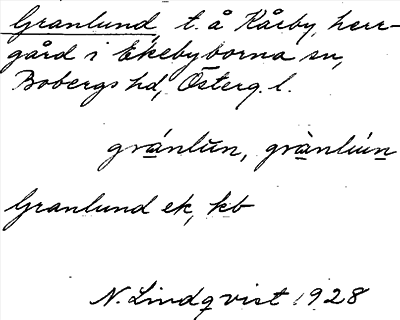 Granlund, t. å Kårby, herr-
gård i Ekebyborna sn,
Bobergs hd, Österg. l.
gránlun, grànlún
Granlund ek, kb
N. Lindqvist 1928